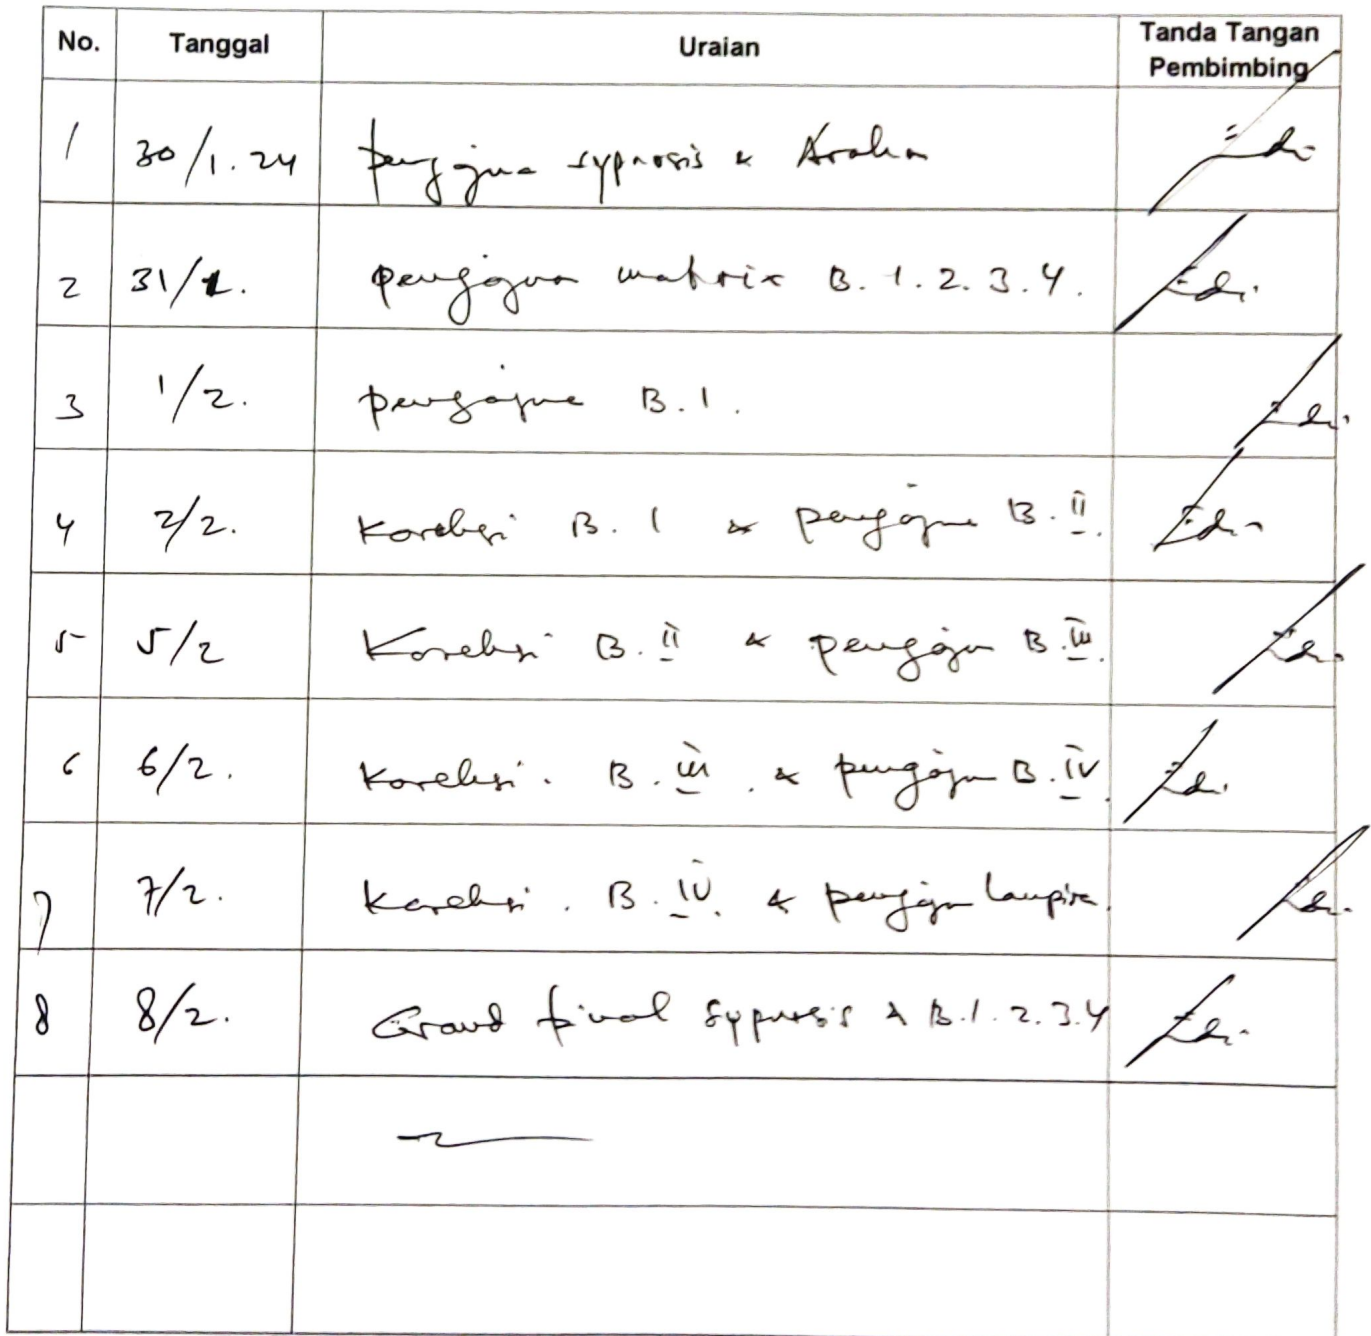 No. Tanggal Uraian Tanda Tangan Pembimbing
1 30/1.24 pengajuan sypnosis & Arahan
2 31/1. pengajuan matrix B. 1. 2. 3. 4.
3 1/2. pengajuan B. 1.
4 2/2. Koreksi B. 1 & pengajuan B. II.
5 5/2 Koreksi B. II & pengajuan B. III.
6 6/2. Koreksi. B. III. & pengajuan B. IV.
7 7/2. Koreksi. B. IV. & pengajuan Lampiran.
8 8/2. Grand final Sypnosis & B. 1. 2. 3. 4